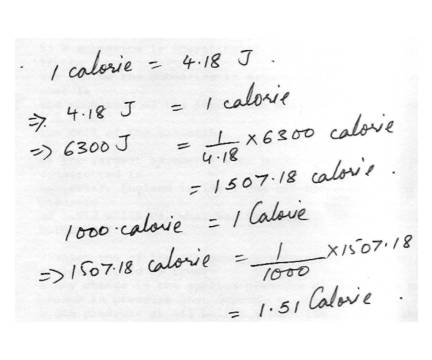 . 1 calorie = 4.18 J .
⇒ 4.18 J = 1 calorie
⇒ 6300 J = 1/4.18 × 6300 calorie
= 1507.18 calorie .
1000 calorie = 1 Calorie
⇒ 1507.18 calorie = 1/1000 × 1507.18
= 1.51 Calorie .